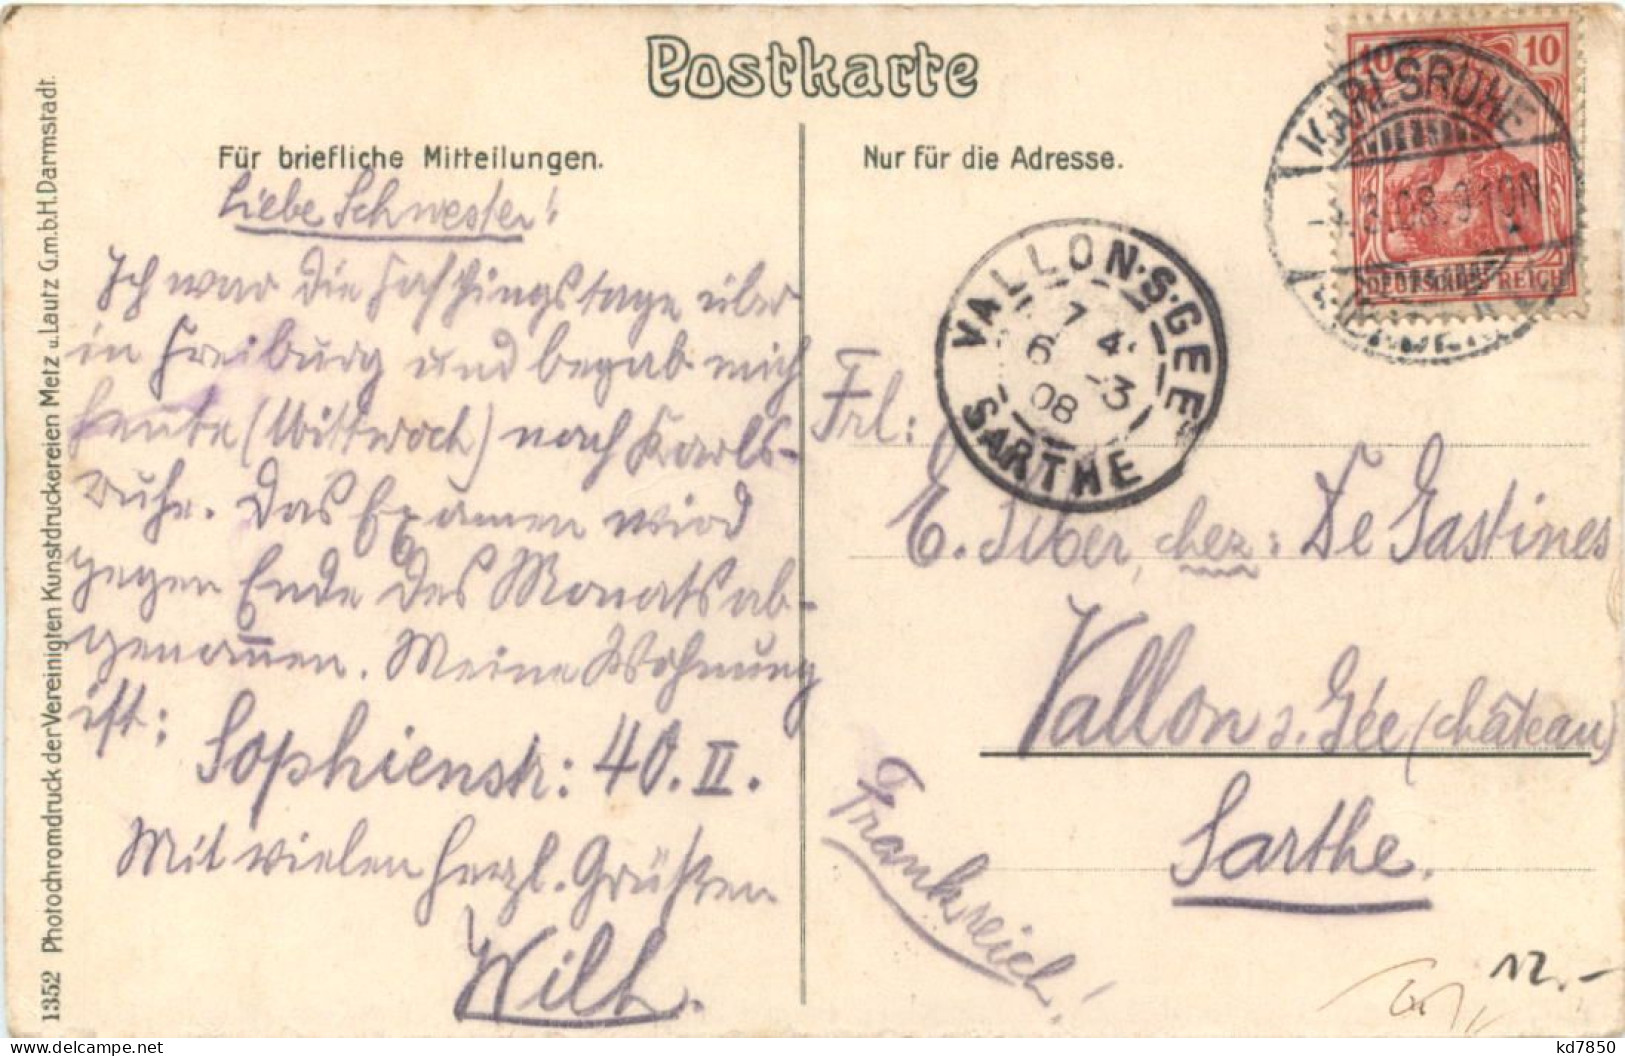 Postkarte
Für briefliche Mitteilungen.
Nur für die Adresse.
Liebe Schwester!
Ich war die Fasthingstage über
in Freiburg und begab mich
heute (Mittwoch) nach Karls-
ruhe. Das Examen wird
gegen Ende des Monats ab-
genom̄en. Meine Wohnung
ist:
Sophienstr: 40. II.
Mit vielen herzl. Grüßen
Wilh.
1352 Photochromdruck der Vereinigten Kunstdruckereien Metz u. Lautz G.m.b.H. Darmstadt.
10 10
DEUTSCHES REICH
KARLSRUHE
4.3.08. 9-10N
VALLON-S-GEE
7 4
6 -3
08
SARTHE
Frl:
E. Siber, chez: De Gastines
Vallon s. Gée (château)
Sarthe.
Frankreich!
12.-
delcampe.net
kd7850